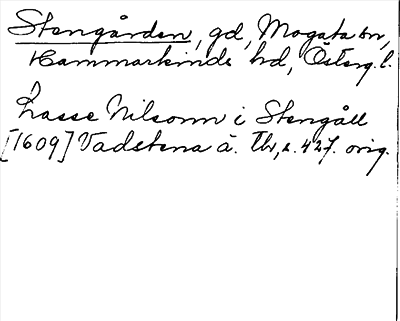 Stengården, gd, Mogata sn,
Hammarkinds hd, Österg.l.
Lasse Nilsonn i Stengåll
[1609] Vadstena ä. Tb, s. 427. orig.